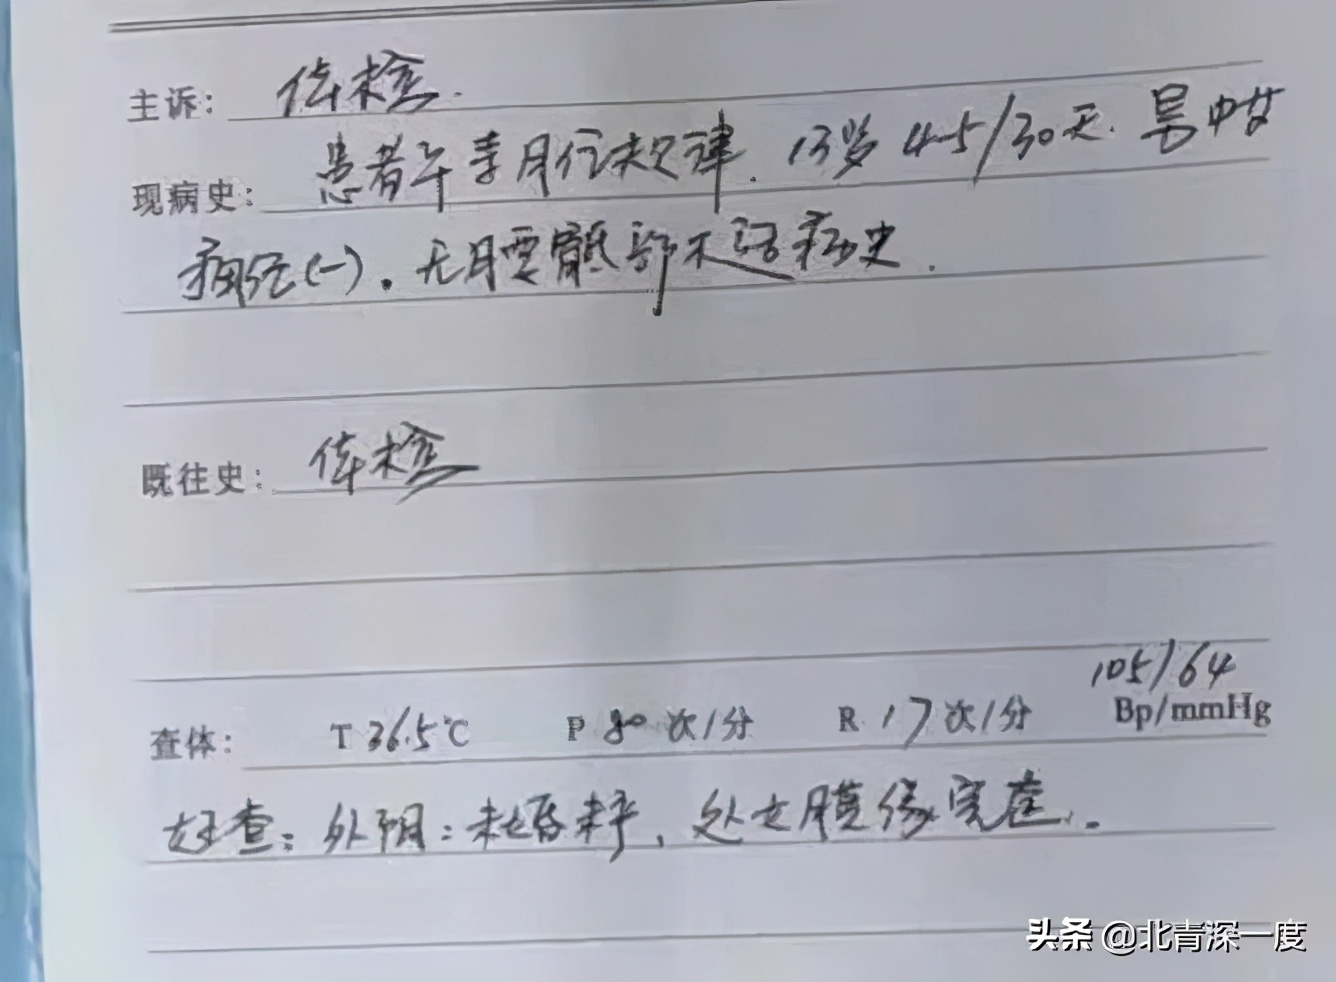 主诉： 体检.
现病史： 患者平素月经规律. 13岁 4-5/30天. 量中せ
痛经(一). 无腰骶部不适病史.
既往史： 体检
105/64
查体： T 36.5℃ P 80 次/分 R 17 次/分 Bp/mmHg
妇查: 外阴: 未婚未产, 处女膜缘完整.
头条 @北青深一度